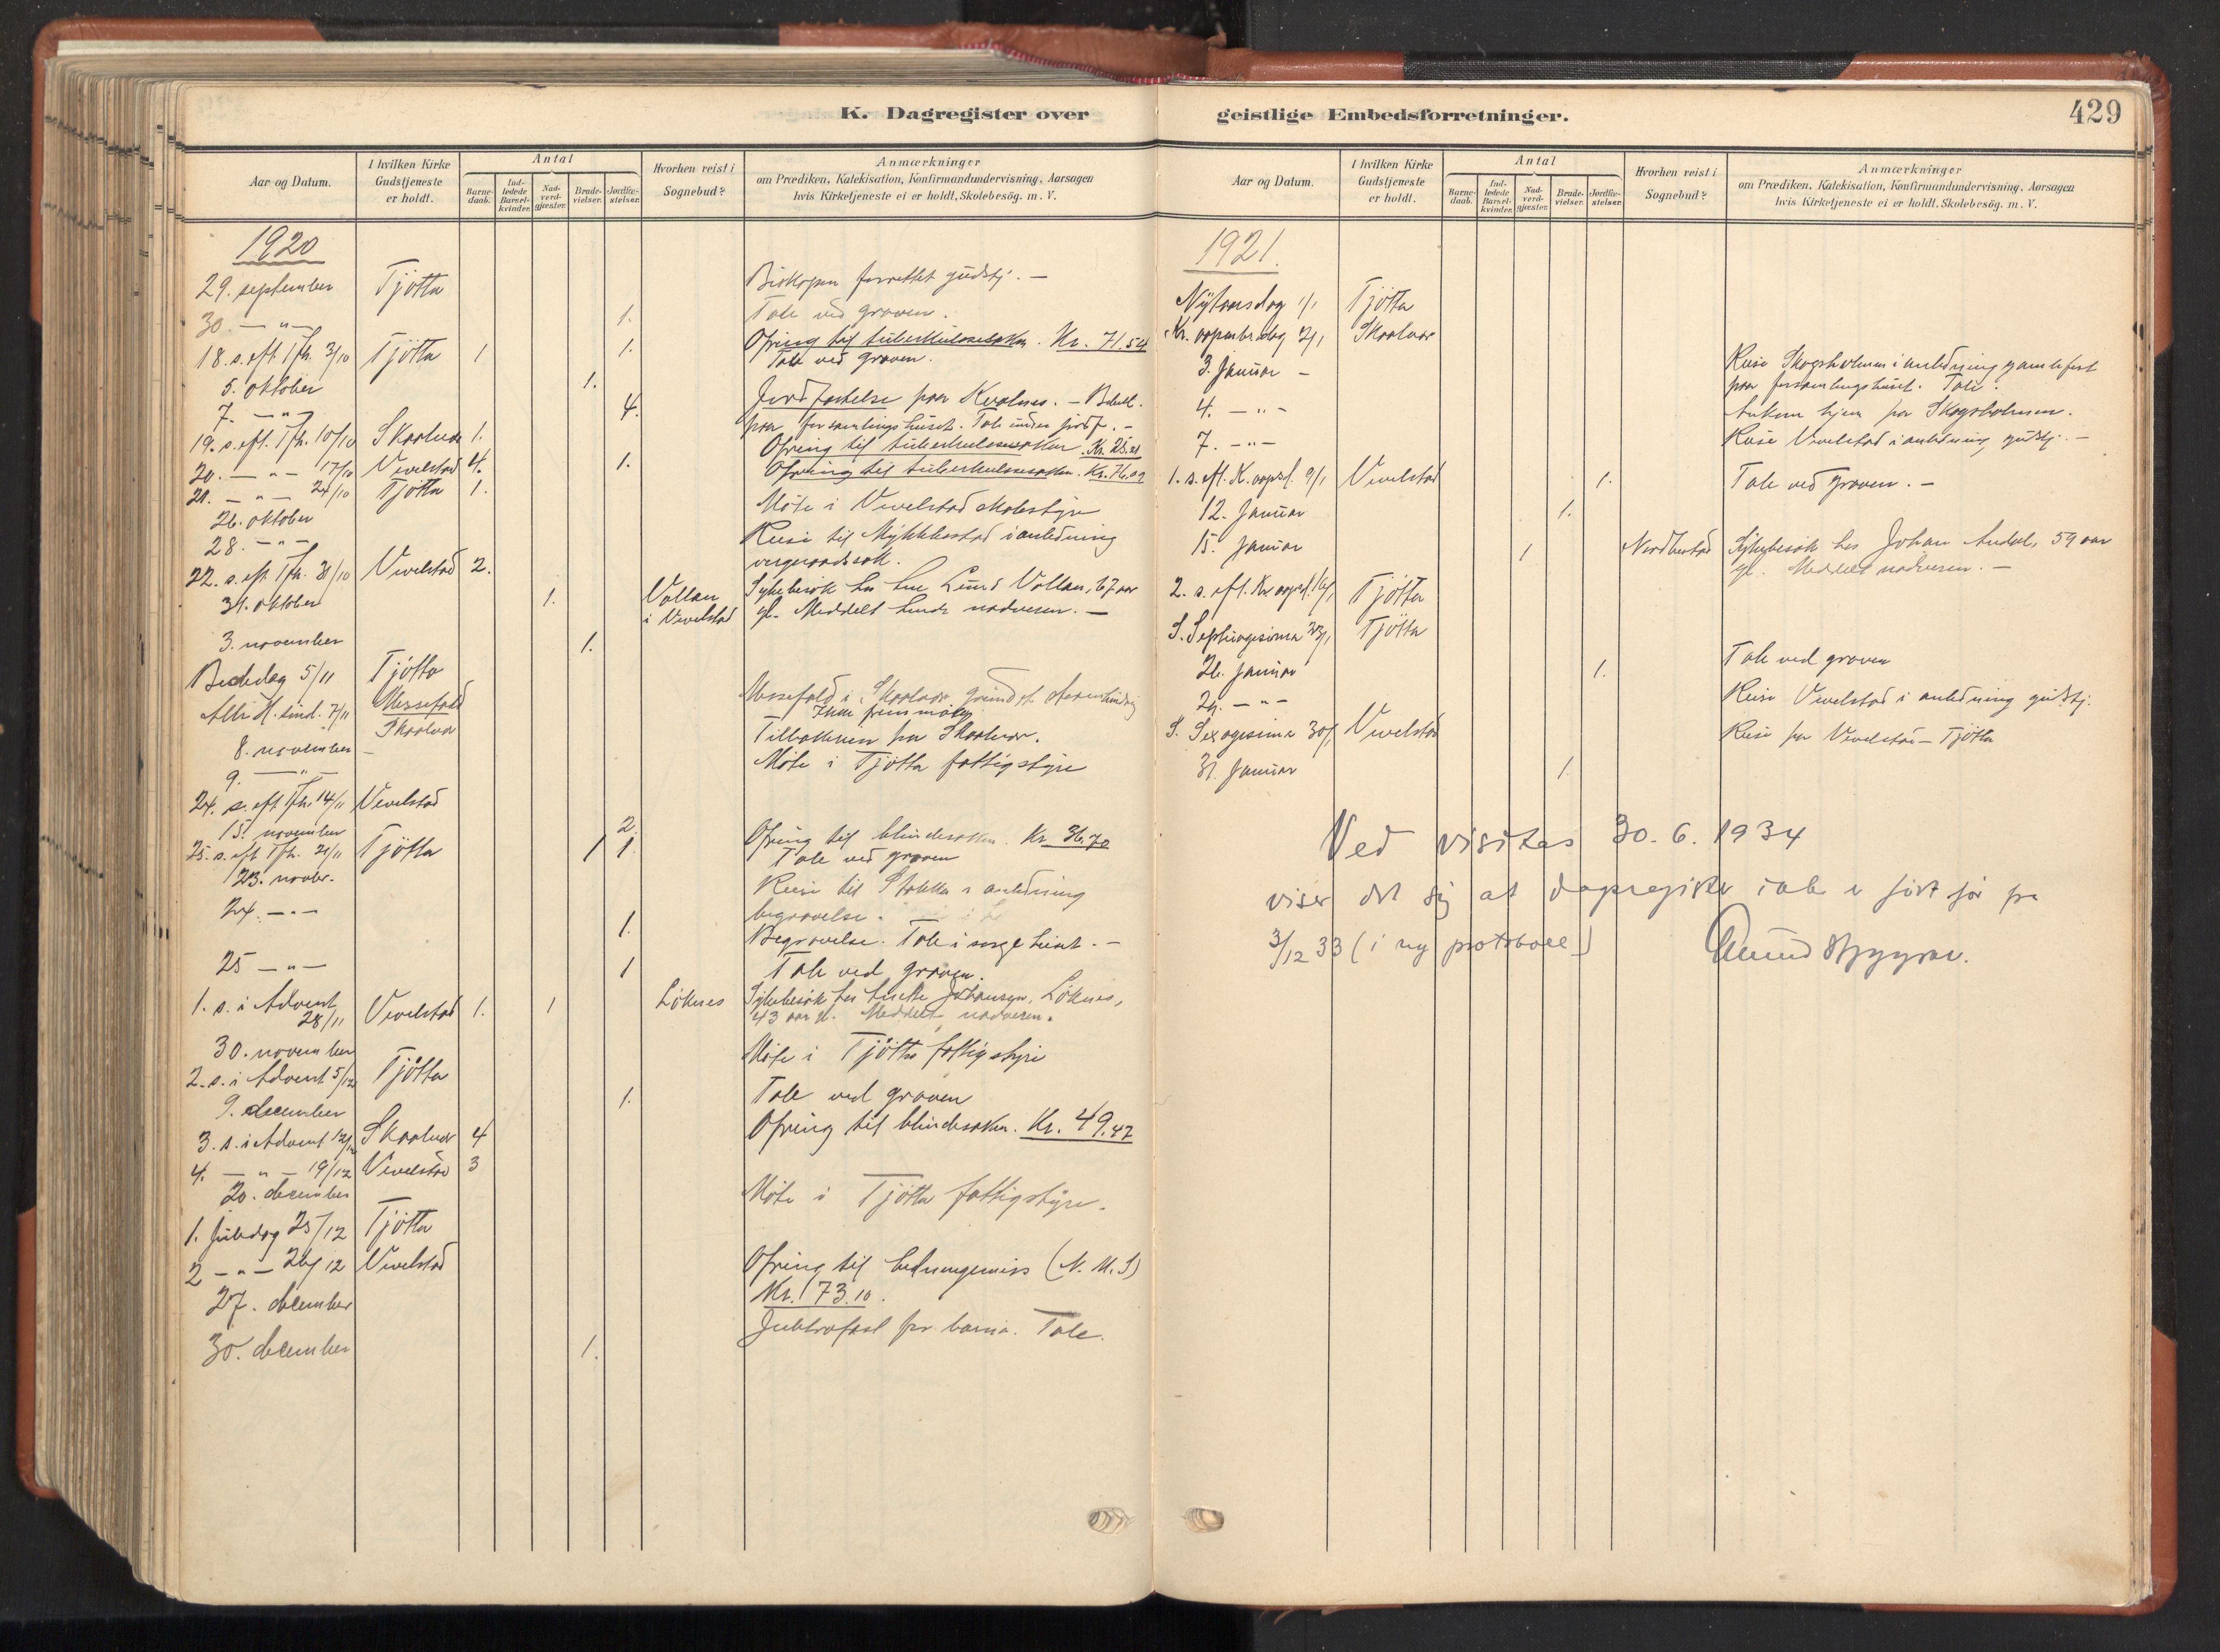 K. Dagregister over
Aar og Datum.
I hvilken Kirke Gudstjeneste er holdt.
Antal
Barne-daab.
Ind-ledede Barsel-kvinder.
Nad-verd-gjæster.
Brude-vielser.
Jordfæ-stelser.
Hvorhen reist i Sognebud?
Anmærkninger
om Prædiken, Katekisation, Konfirmandundervisning, Aarsagen
hvis Kirketjeneste ei er holdt, Skolebesög. m. V.
1920
29. september Tjötta Biskopen forrettet gudstj. —
30. — " — 1. Tale ved graven.
18. s. eft. Tfh. 3/10 Tjötta 1 1. Ofring til tuberkulosesaken. Kr. 71.54
Tale ved graven.
5. oktober 1.
7. — " — 4. Jordfæstelse paa Kvalnes. —
paa forsamlingshuset. Tale under jordf. —
19. s. eft. Tfh. 10/10 Skaalvær 1. Ofring til tuberkulosesaken. Kr. 25.21
20. — " — 17/10 Vevelstad 4. 1. Ofring til tuberkulosesaken. Kr. 76.02
21. — " — 24/10 Tjötta 1.
26. oktober Möte i Vevelstad skolestyre
28. — " — Reise til Mykkebostad i anledning
vergeraadssak.
22. s. eft. Tfh. 31/10 Vevelstad 2.
31. oktober 1. Vollan i Vevelstad Sykebesök hos Lund Vollan, 67 aar
gl. Meddelt nadveren. —
3. november 1.
Bededag 5/11 Tjötta
Alle H. sönd. 7/11 Messefald Skaalvær Messefald i Skaalvær grundet
Ikke fremmöte
8. november — Tilbakereise fra Skaalvær.
9. — " — Möte i Tjötta fattigstyre
24. s. eft. Tfh. 14/11 Vevelstad
15. november 2.
25. s. eft. Tfh. 21/11 Tjötta 1 1. Ofring til blindesaken. Kr. 36.70
Tale ved graven
23. novbr. Reise til Stokka i anledning
24. — " — begravelse.
1. Begravelse. Tale i sørgehuset. —
25 — " — 1 Tale ved graven.
1. s. i Advent 28/11 Vevelstad 1. 1 Löknes Sykebesök hos Johansen, Löknes,
43 aar gl. Meddelt nadveren.
30. november Möte i Tjötta fattigstyre
2. s. i Advent 5/12 Tjötta
9. december 1. Tale ved graven
3. s. i Advent 12/12 Skaalvær 4 Ofring til blindesaken. Kr. 49.47
4. — " — 19/12 Vevelstad 3
20. december Möte i Tjötta fattigstyre.
1. Juledag 25/12 Tjötta
2 — " — 26/12 Vevelstad Ofring til hedningemiss. (N. M. S)
Kr. 73.10.
27. december Juletrefest for barna. Tale.
30. december 1.
geistlige Embedsforretninger.
429
Aar og Datum.
I hvilken Kirke Gudstjeneste er holdt.
Antal
Barne-daab.
Ind-ledede Barsel-kvinder.
Nad-verd-gjæster.
Brude-vielser.
Jordfæ-stelser.
Hvorhen reist i Sognebud?
Anmærkninger
om Prædiken, Katekisation, Konfirmandundervisning, Aarsagen
hvis Kirketjeneste ei er holdt, Skolebesög. m. V.
1921.
Nytaarsdag 1/1 Tjötta
Kr. aapenb. dag 2/1 Skaalvær
3. Januar — Reise Skogsholmen i anledning gamlefest
paa forsamlingshuset. Tale.
4. — " — Ankom hjem fra Skogsholmen.
7. — " — Reise Vevelstad i anledning gudstj. —
1. s. eft. K. aapb. 9/1 Vevelstad 1. Tale ved graven. —
12. Januar 1.
15. Januar 1 Nordbostad Sykebesök hos Johan Andal, 59 aar
gl. Meddelt nadveren. —
2. s. eft. Kr. aapb. 16/1 Tjötta
S. Septuagesima 23/1 Tjötta
26. Januar 1. Tale ved graven
29. — " — Reise Vevelstad i anledning gudstj.
S. Sexagesima 30/1 Vevelstad Reise fra Vevelstad — Tjötta
31. Januar 1.
Ved visitas 30. 6. 1934
viser det sig at dagregister ikke er fört för fra
3/12 33 (i ny protokoll)